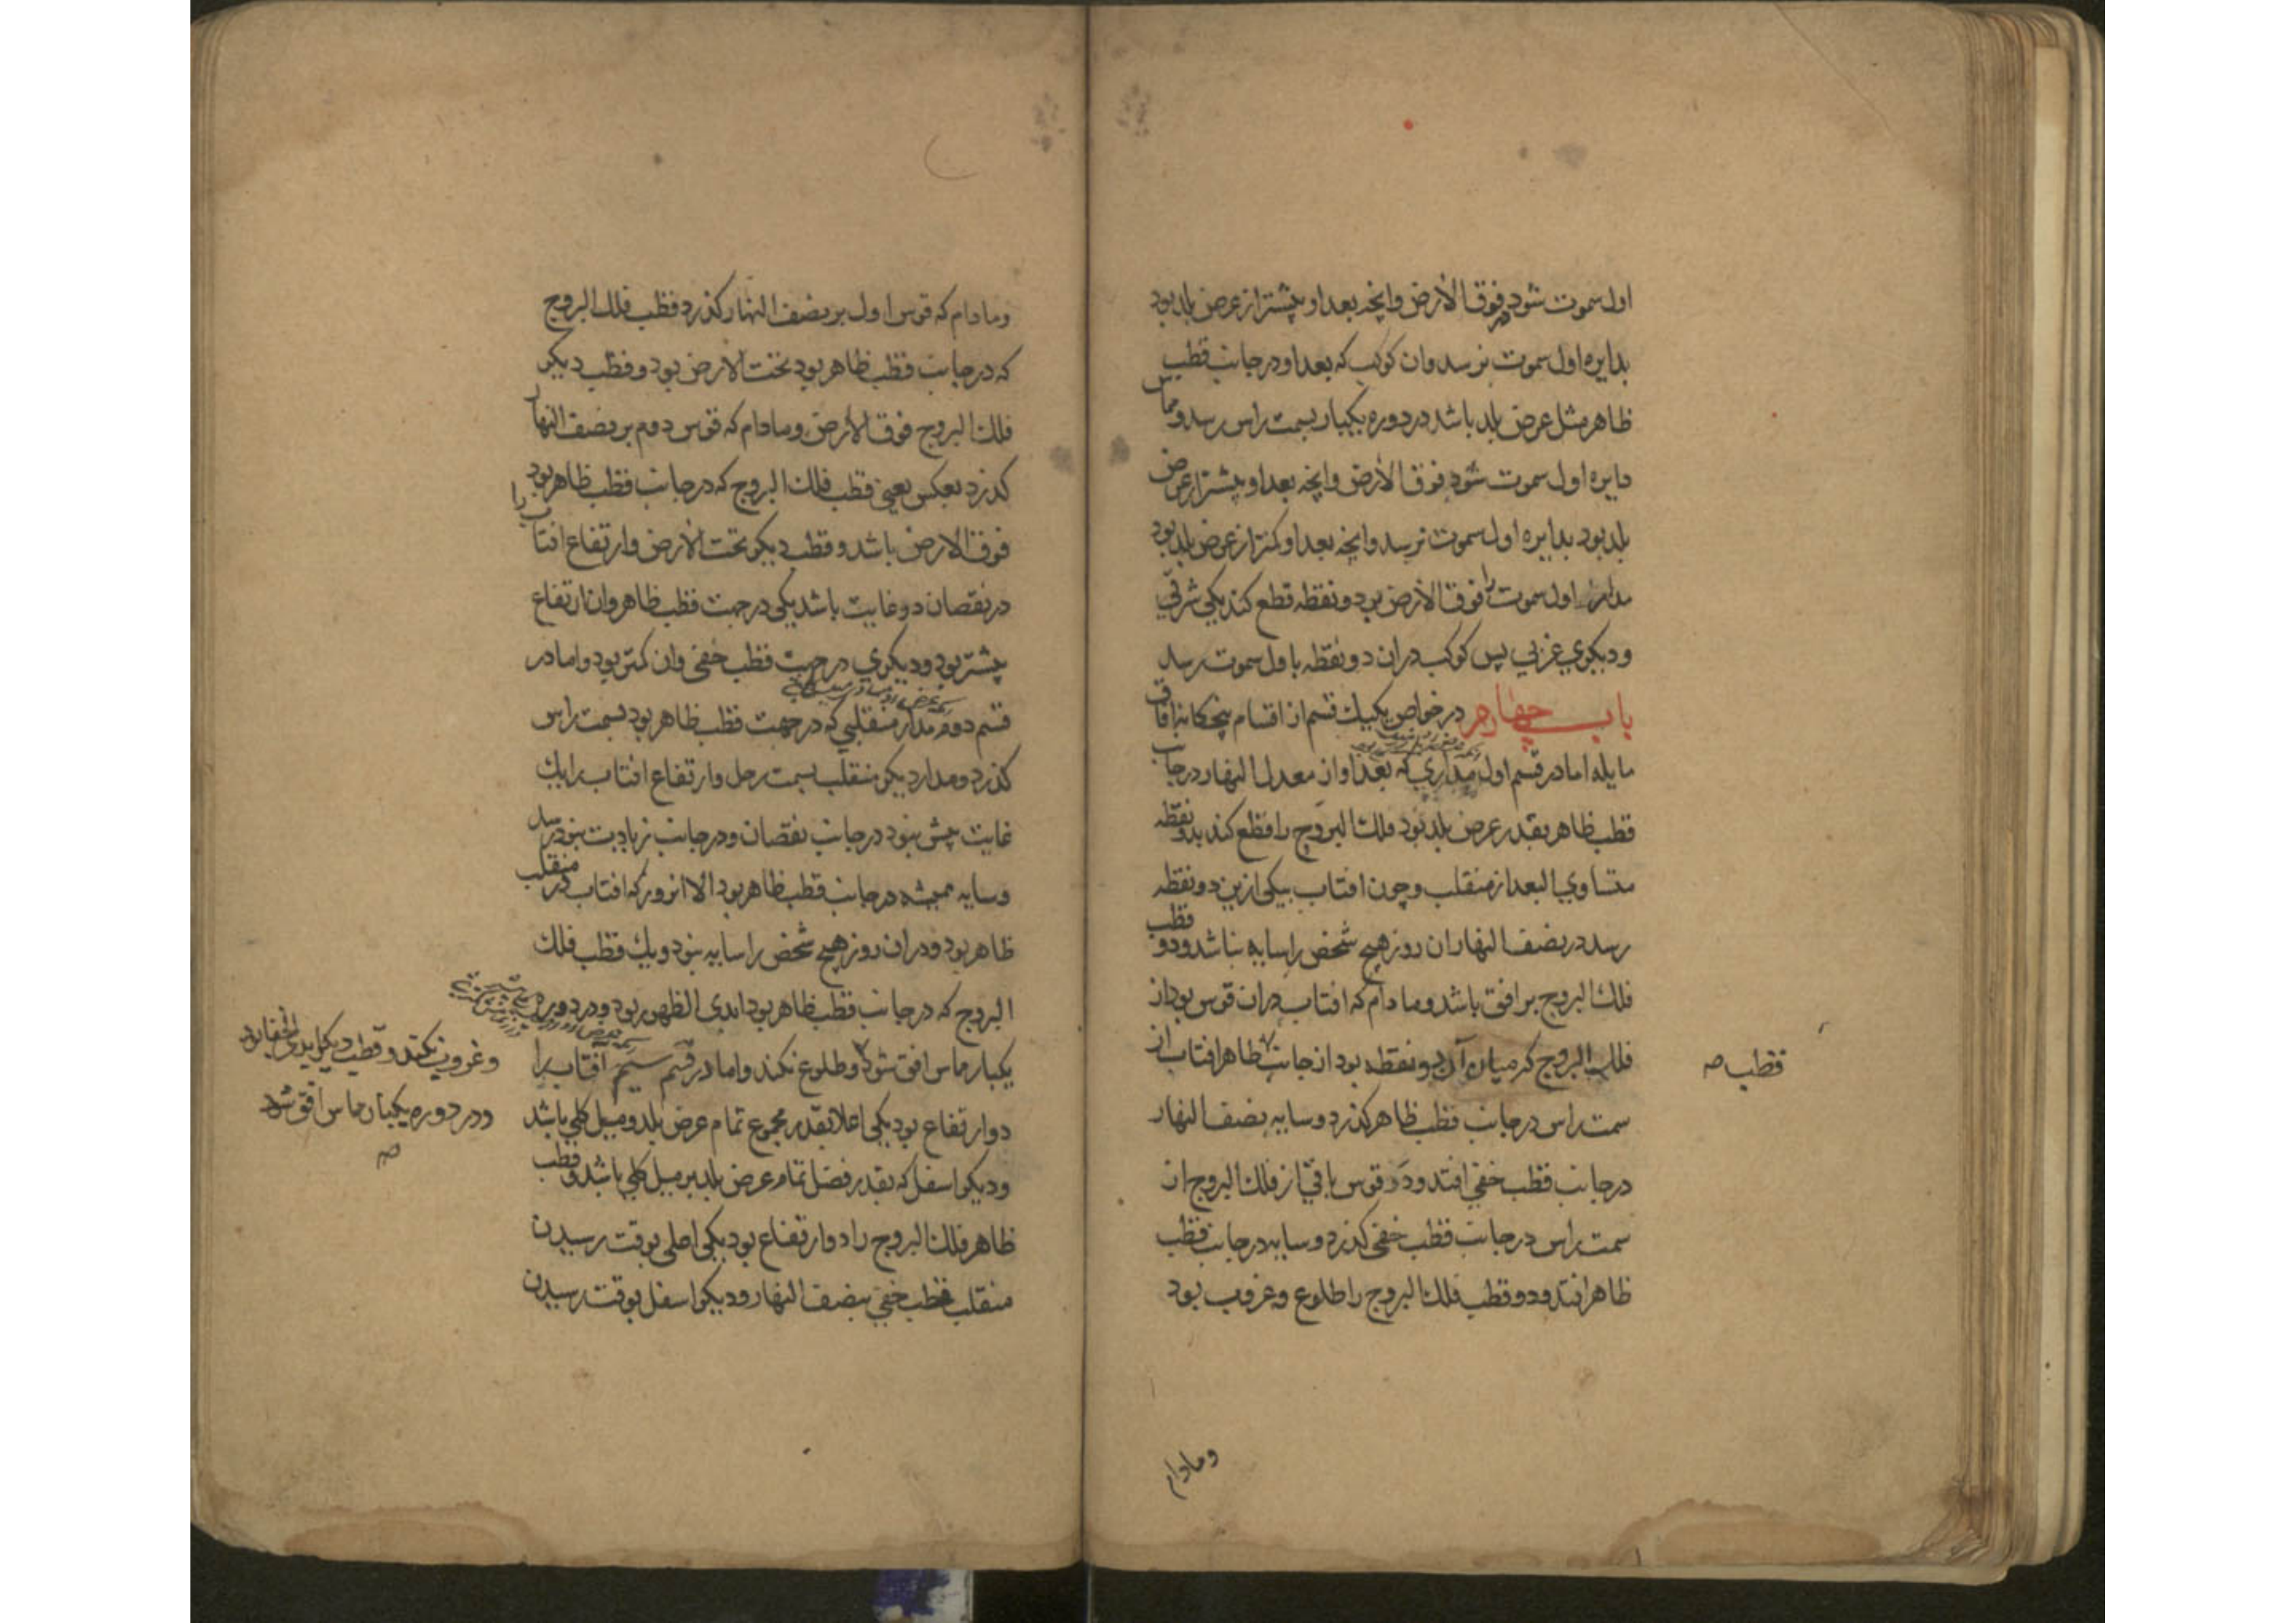 اول سموت شود در فوق الارض وانچه بعد او بیشتر از عرض بلد بود
بدایره اول سموت نرسد وان کوکب که بعد او در جانب قطب
ظاهر مثل عرض بلد باشد در دوره یکبار بسمت راس رسد ومماس
دایره اول سموت شود فوق الارض وانچه بعد او بیشتر از عرض
بلد بود بدایره اول سموت نرسد وانچه بعد او کمتر از عرض بلد بود
مدارش اول سموت را فوق الارض بدو نقطه قطع کند یکی شرقی
ودیکری غربی پس کوکب دران دو نقطه باول سموت رسد
باب چهارم در خواص یکیک قسم از اقسام پنجکانه افاق
مایله اما در قسم اول مداری که بعد او از معدل النهار در جانب
قطب ظاهر بقدر عرض بلد بود فلک البروج را قطع کند بدو نقطه
متساوی البعد از منقلب وچون افتاب بیکی ازین دو نقطه
رسد در نصف النهار ان روز هیچ شخص را سایه نباشد ودو قطب
فلک البروج بر افق باشد ومادام که افتاب دران قوس بود از
فلک البروج که میان آن دو نقطه بود از جانب ظاهر افتاب از
قطب صه
سمت راس در جانب قطب ظاهر کذرد وسایه نصف النهار
در جانب قطب خفی افتد ودر قوس باقی از فلک البروج از
سمت راس در جانب قطب خفی کذرد وسایه در جانب قطب
ظاهر افتد ودو قطب فلک البروج را طلوع وغروب بود
ومادام
ومادام که قوس اول بر نصف النهار کذرد قطب فلک البروج
که در جانب قطب ظاهر بود تحت الارض بود وقطب دیکر
فلک البروج فوق الارض ومادام که قوس دوم بر نصف النهار
کذرد بعکس یعنی قطب فلک البروج که در جانب قطب ظاهر بود
فوق الارض باشد وقطب دیکر تحت الارض وارتفاع افتاب را
در نقصان دو غایت باشد یکی در جهت قطب ظاهر وان ارتفاع
بیشتر بود ودیکری در جهت قطب خفی وان کمتر بود واما در
قسم دوم مدار منقلبی که در جهت قطب ظاهر بود بسمت راس
کذرد ومدار دیکر منقلب بسمت رجل وارتفاع افتاب را یک
غایت بیش نبود در جانب نقصان ودر جانب زیادت نبود
وسایه همیشه در جانب قطب ظاهر بود الا انروز که افتاب در منقلب
ظاهر بود ودران روز هیچ شخص را سایه نبود ویک قطب فلک
البروج که در جانب قطب ظاهر بود ابدی الظهور بود ودر دوره
یکبار مماس افق شود وطلوع نکند واما در قسم سیم افتاب را
دو ارتفاع بود یکی اعلا بقدر مجموع تمام عرض بلد ومیل کلی باشد
ودیکر اسفل که بقدر فضل تمام عرض بلد بر میل کلی باشد وقطب
ظاهر فلک البروج را دو ارتفاع بود یکی اعلی بوقت رسیدن
منقلب قطب خفی بنصف النهار ودیکر اسفل بوقت رسیدن
وغروب نکند وقطب دیکر ابدی الخفا بود
ودر دوره یکبار مماس افق شود
صه